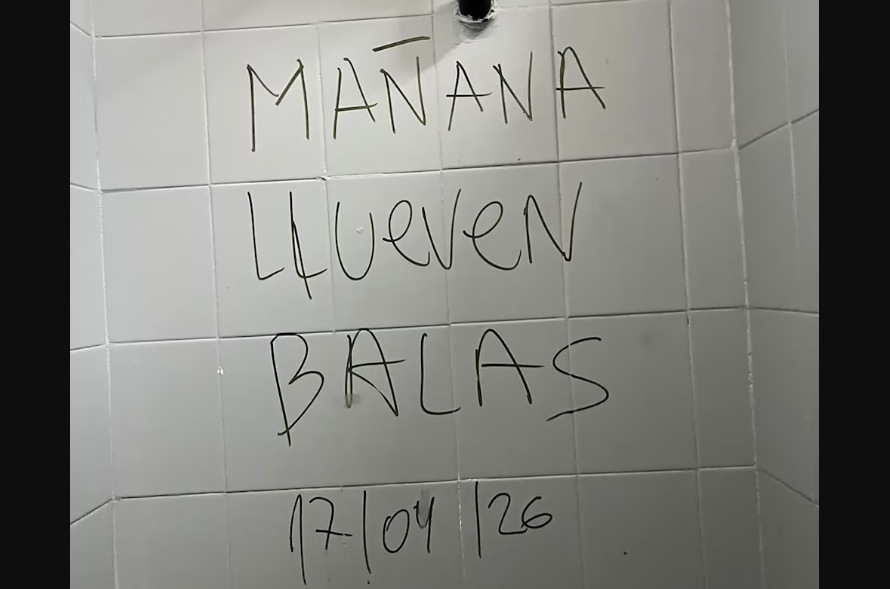 MAÑANA
LLUeVeN
BALAS
17/04/26